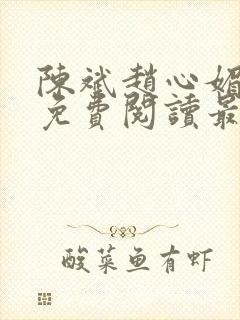 陳斌趙心媚
免費閱讀最
酸菜鱼有虾